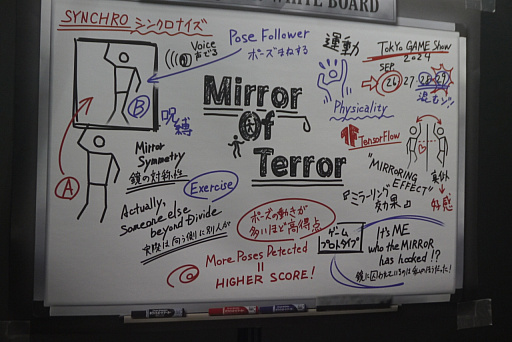 WHITE BOARD
SYNCHRO シンクロナイズ
Voice
声でる
Pose Follower
ポーズまねする
運動
Physicality
TOKYO GAME SHOW
2024
SEP.
26 27 28 29
B
呪縛
A
Mirror
Of
Terror
TensorFlow
Mirror
Symmetry
鏡の対称性
Exercise
Actually,
Someone else
beyond Divide
実際は向う側に別人が
"MIRRORING
EFFECT"
ミラーリング
効果
好感
ポーズの動きが
多いほど高得点
More Poses Detected
=
HIGHER SCORE!
ゲーム
プロトタイプ
It's ME
who the MIRROR
has hooked!?